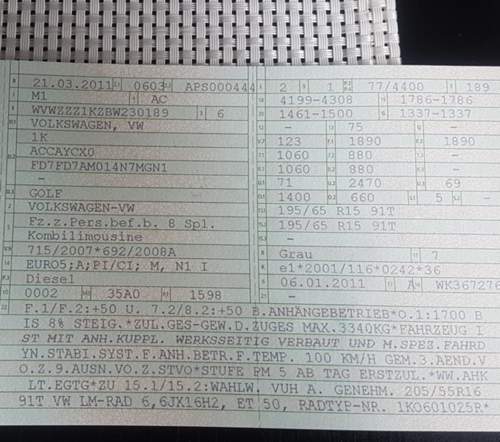 B 21.03.2011 0603 APS000444
M1 AC
WVWZZZ1KZBW230189 6
VOLKSWAGEN, VW
1K
ACCAYCX0
FD7FD7AM014N7MGN1
-
GOLF
VOLKSWAGEN-VW
Fz.z.Pers.bef.b. 8 Spl.
Kombilimousine
715/2007*692/2008A
EURO5;A;PI/CI; M, N1 I
Diesel
0002 35A0 1598
2 1 77/4400 189
4199-4308 1786-1786
1461-1500 1337-1337
- 75 -
123 1890 1890
1060 880 -
1060 880 -
71 2470 69
1400 660 5 -
195/65 R15 91T
195/65 R15 91T
-
Grau 7
e1*2001/116*0242*36
06.01.2011 A WK367276
F.1/F.2:+50 U. 7.2/8.2:+50 B.ANHÄNGEBETRIEB*O.1:1700 B
IS 8% STEIG.*ZUL.GES-GEW.D.ZUGES MAX.3340KG*FAHRZEUG I
ST MIT ANH.KUPPL. WERKSSEITIG VERBAUT UND M.SPEZ.FAHRD
YN.STABI.SYST.F.ANH.BETR.F.TEMP. 100 KM/H GEM.3.AEND.V
O.Z.9.AUSN.VO.Z.STVO*STUFE PM 5 AB TAG ERSTZUL.*WW.AHK
LT.EGTG*ZU 15.1/15.2:WAHLW. VUH A. GENEHM. 205/55R16
91T VW LM-RAD 6,6JX16H2, ET 50, RADTYP-NR. 1K0601025R*